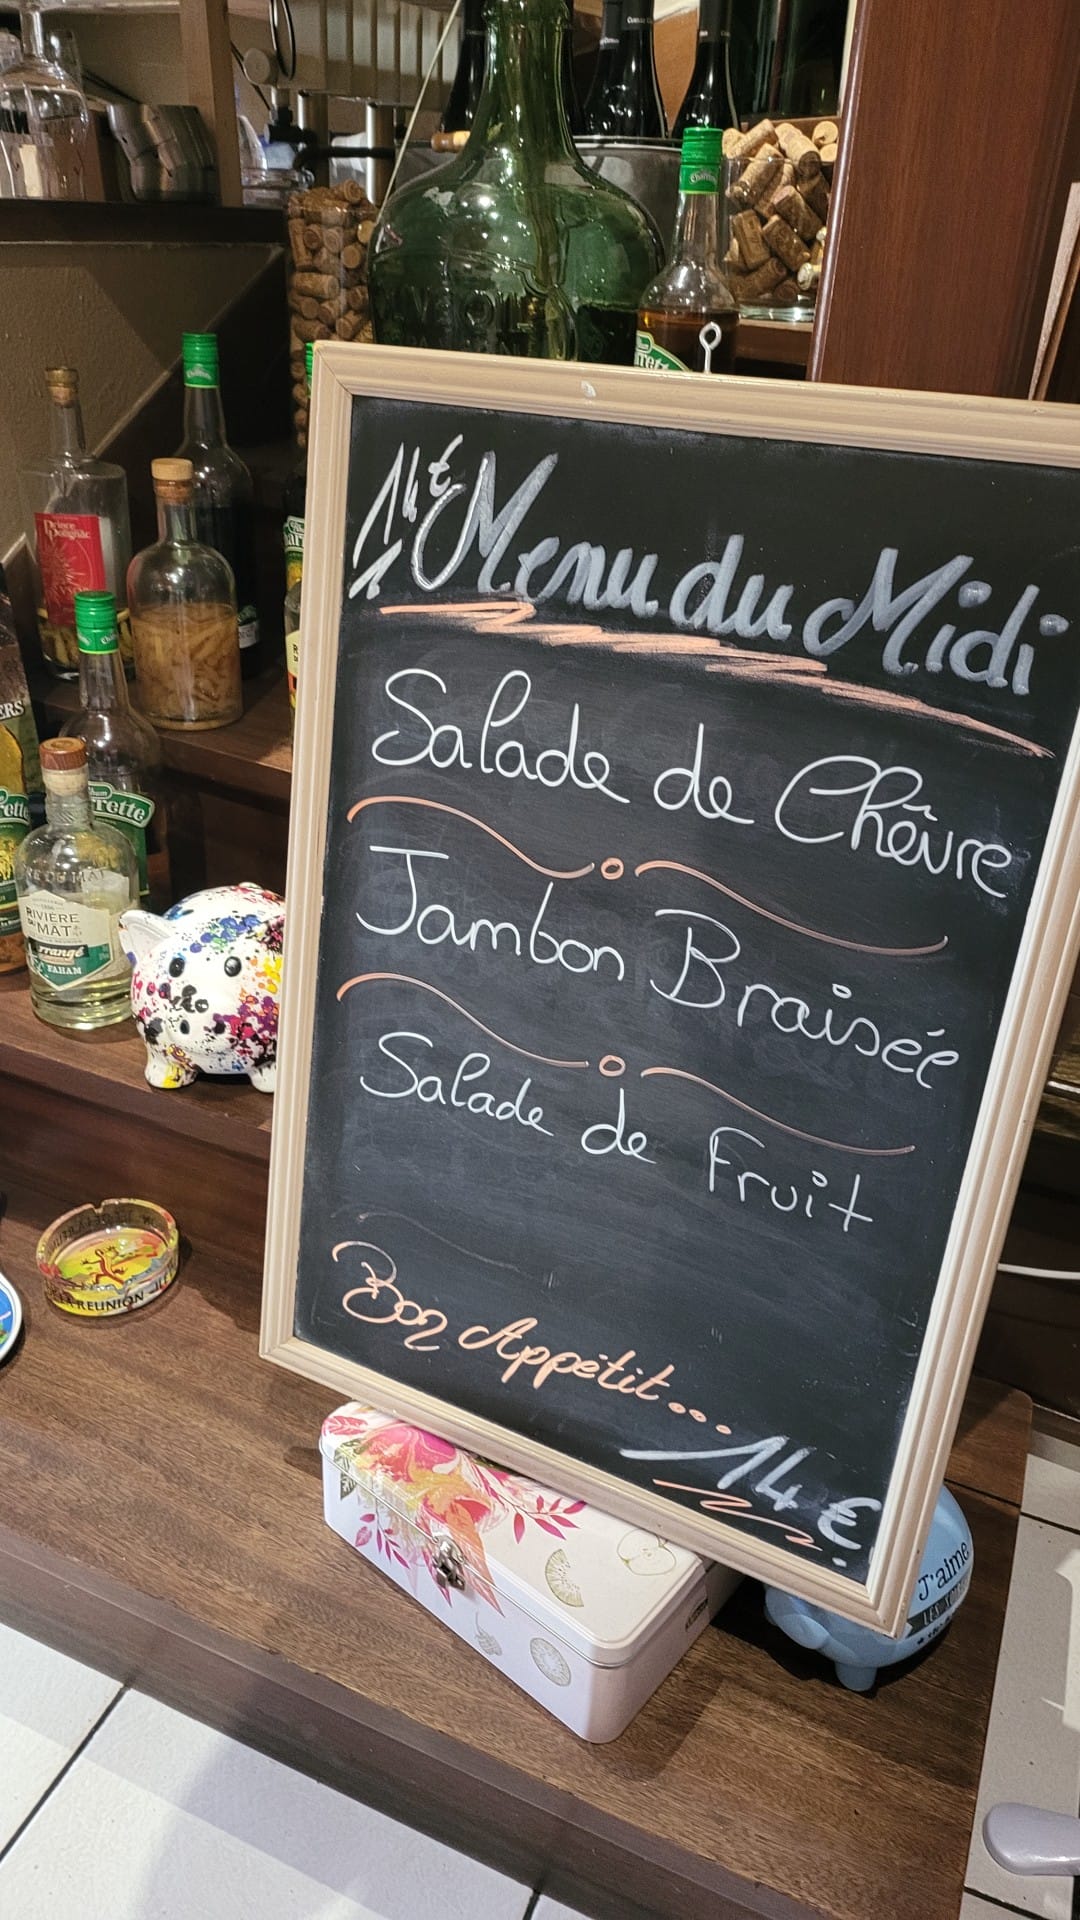 14€ Menu du Midi
Salade de Chêvre
Jambon Braisée
Salade de Fruit
Bon Appétit...
14€
Prince
Polignac
Charrette
rrette
RIVIÈRE
DU MÂT
arrangé
FAHAM
LA RÉUNION
J'aime
LES